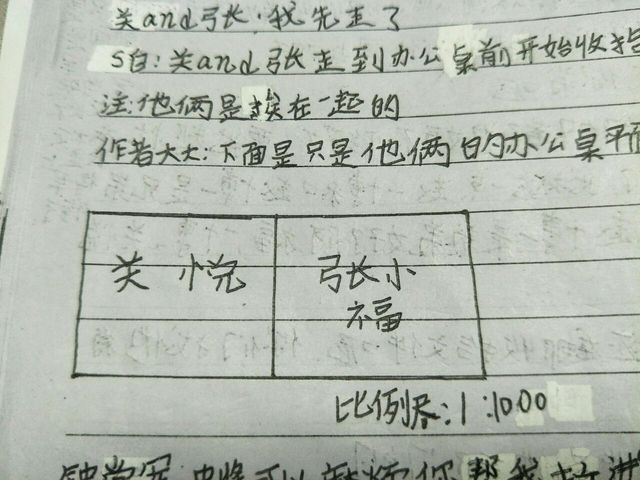 关and张:我先走了
S白:关and张走到办公桌前开始收拾
注:他俩是挨在一起的
作者大大:下面是只是他俩的办公桌平面
关悦 张小福
比例尺:1:1000